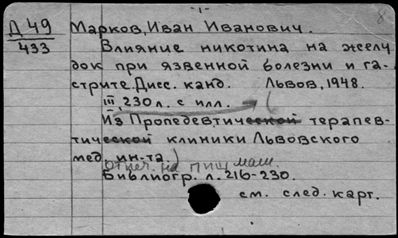 -1-
Д 49 Марков, Иван Иванович.
433 Влияние никотина на желу
док при язвенной болезни и га-
стрите. Дисс. канд. Львов, 1948.
III, 230 л. с илл.
Из Пропедевтической терапев-
тической клиники Львовского
мед. ин-та.)
отпеч. на пиш маш.
Библиогр. л. 216-230.
см. след. карт.